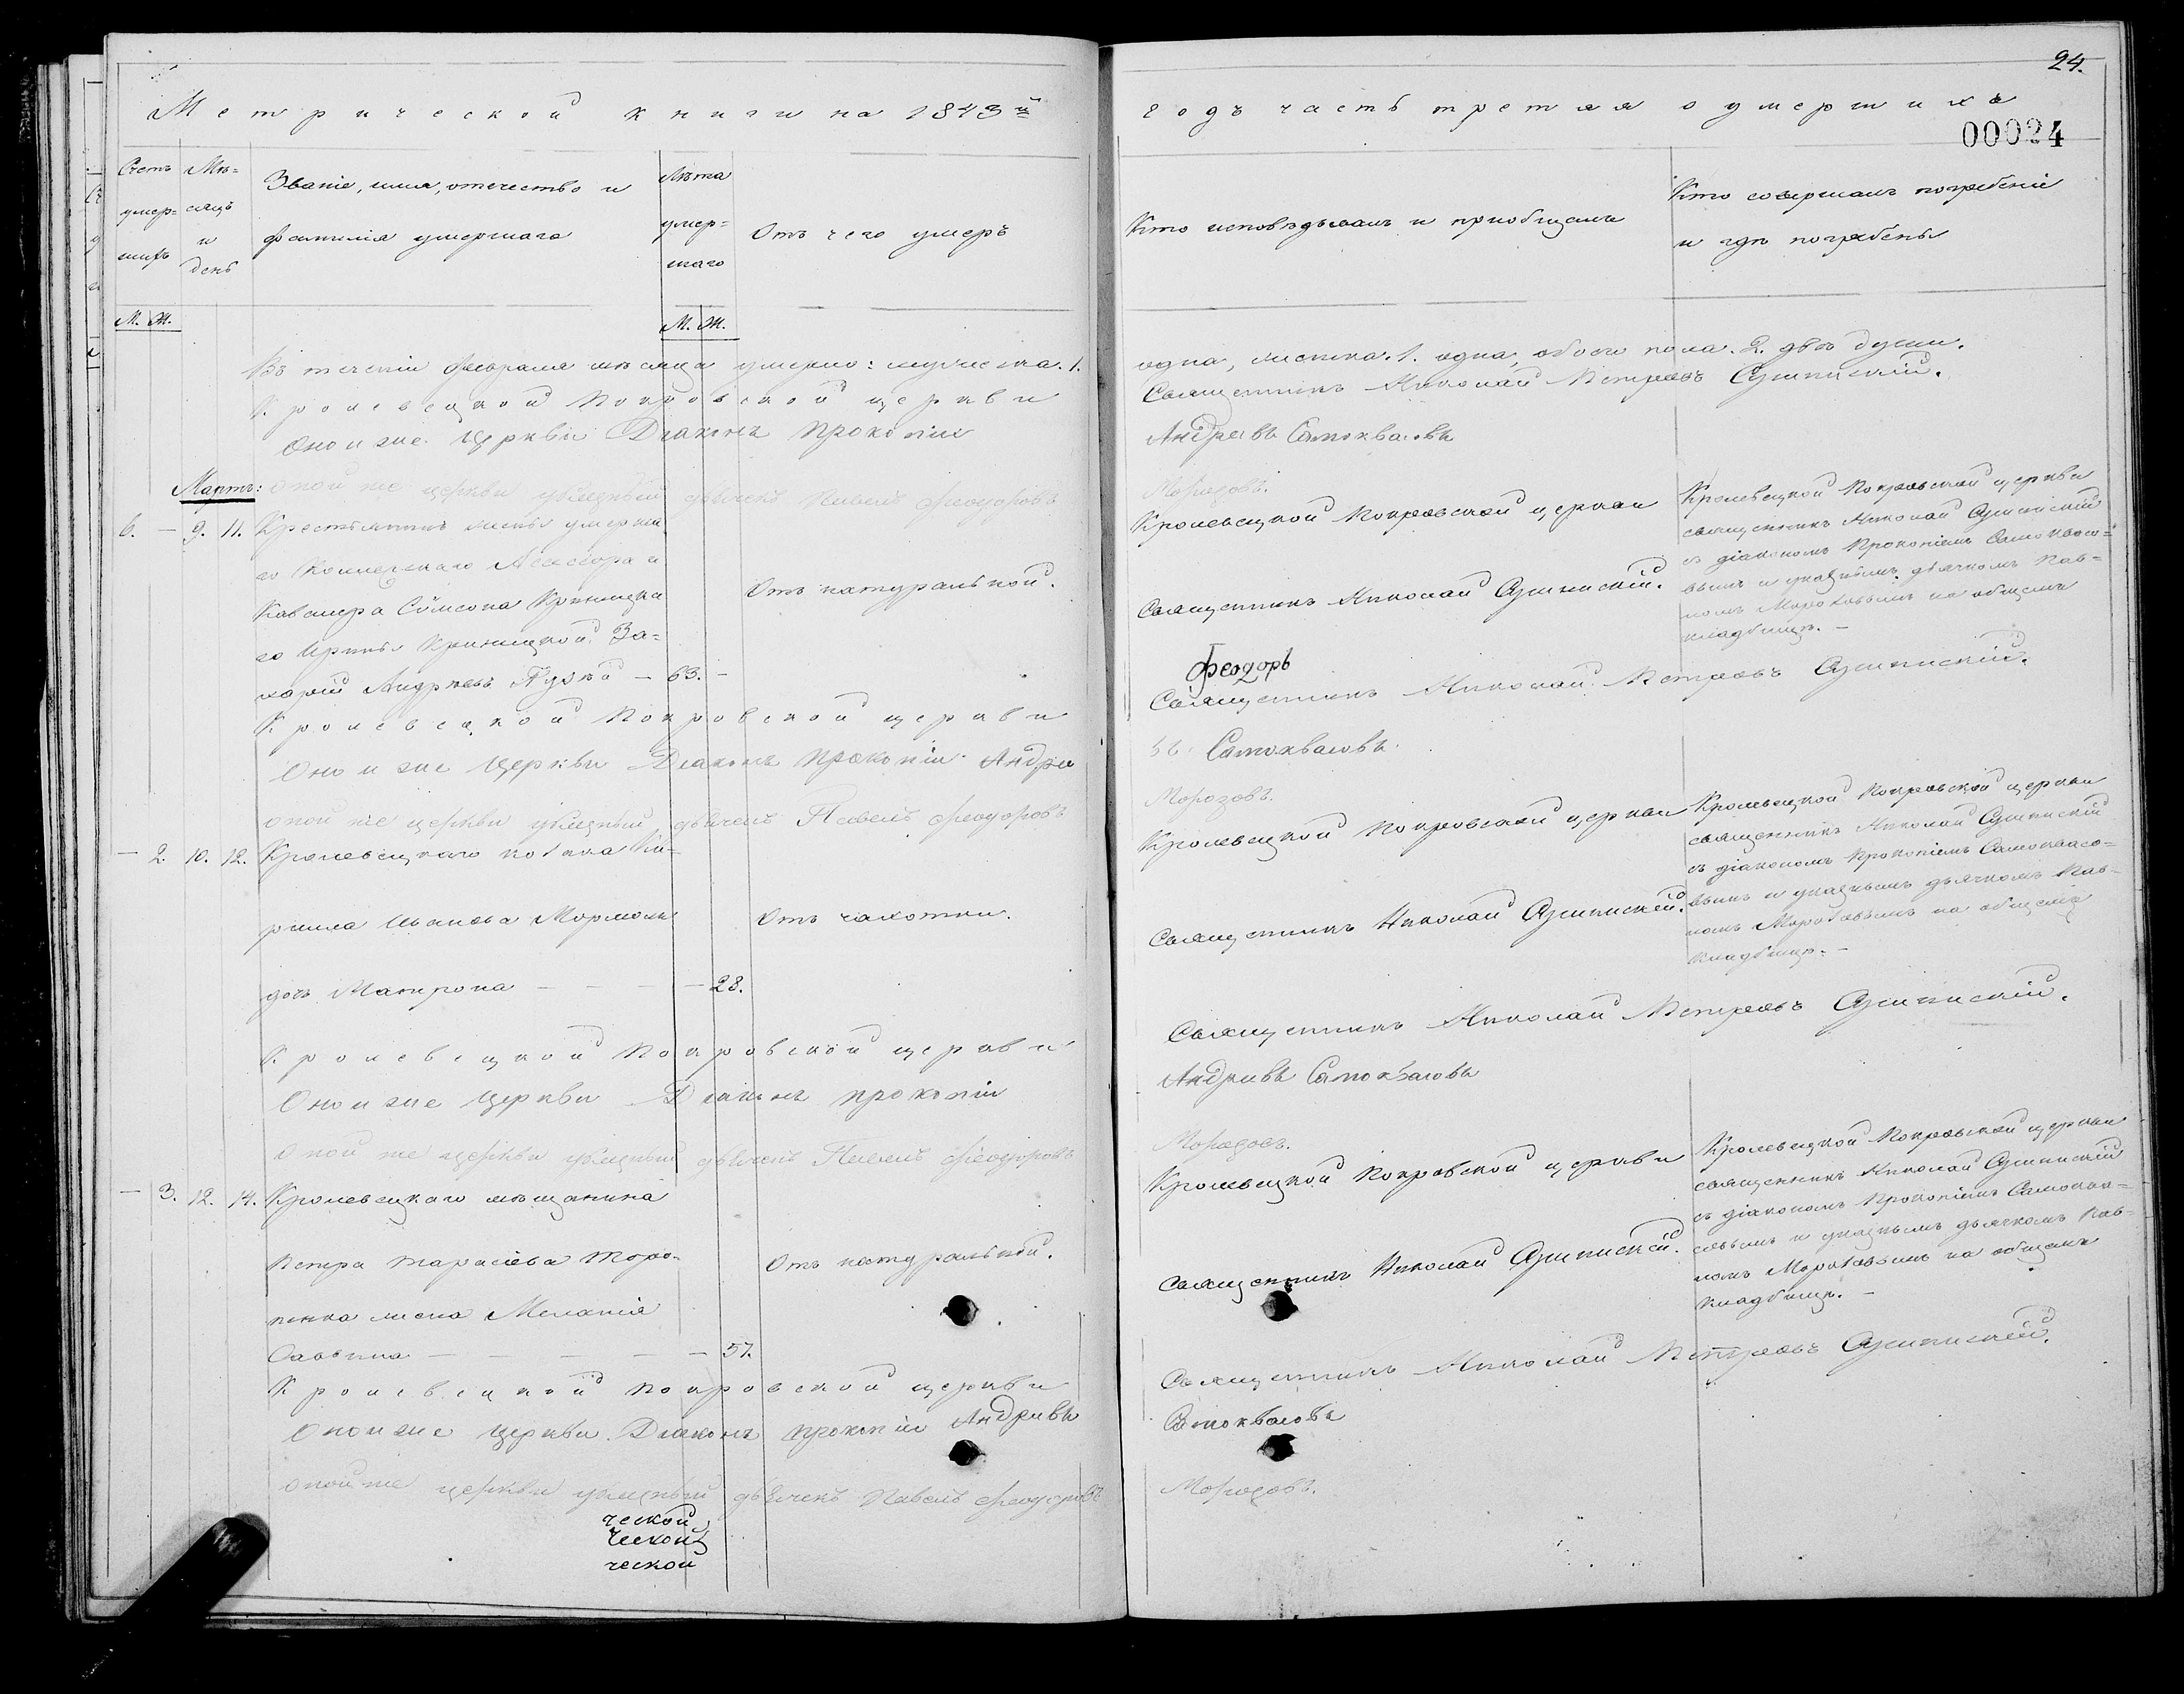 24.
Метрической книги на 1843й
годъ часть третяя о умершихъ
00024
Счетъ умер-шихъ
Мѣ-сяцъ и день
Званіе, имя, отечество и
фамилія умершаго
Лѣта
умер-
шаго
Отъ чего умеръ
Кто исповѣдывалъ и приобщалъ
Кто совершалъ погребеніе
и гдѣ погребены
М. Ж.
М. Ж.
Въ теченіи февраля мѣсяца умерло: мужеска. 1.
одна, женска. 1. одна, обоего пола. 2. двѣ души.
Кролевецкой Покровской церкви
Священникъ Николай Петровъ
Оноиже Церкви Диаконъ Прокопіи
Андреевъ Самоквасовъ
Мартъ:
оной же церкви указный дьячекъ Павелъ Феодоровъ
Морозовъ.
6. — 9. 11. Крестьянинъ жены умерша
го Коллежскаго Асессора и
Кавалера Сѵмеона Криницка
го Ирины Криницкой За-
харій Андреевъ — 63. —
Отъ натуральной.
Кролевецкой Покровской церкви
Священникъ Николай
Кролевецкой Покровской церкви
священникъ Николай
съ діакономъ Прокопіемъ Самоквасо-
вымъ и указнымъ дьячкомъ Пав-
ломъ Морозовымъ на общемъ
кладбищѣ. —
Феодоръ
Кролевецкой Покровской церкви
Священникъ Николай Петровъ
Оноиже Церкви Диаконъ Прокопіи Андре
въ Самоквасовъ.
оной же церкви указный дьячекъ Павелъ Феодоровъ
Морозовъ.
— 2. 10. 12. Кролевецкаго козака Ки-
рилла Иванова
дочь Матрона — — — — 28.
Отъ чахотки.
Кролевецкой Покровской церкви
Священникъ Николай
Кролевецкой Покровской церкви
священникъ Николай
съ діакономъ Прокопіемъ Самоквасо-
вымъ и указнымъ дьячкомъ Пав-
ломъ Морозовымъ на общемъ
кладбищѣ. —
Кролевецкой Покровской церкви
Священникъ Николай Петровъ
Оноиже Церкви Диаконъ Прокопіи
Андреевъ Самоквасовъ
оной же церкви указный дьячекъ Павелъ Феодоровъ
Морозовъ.
— 3. 12. 14. Кролевецкаго мѣщанина
Петра Тарасіева Торо-
пенка жена Меланія
Саввина — — — — — 57.
Отъ натуральной.
Кролевецкой Покровской церкви
Священникъ Николай
Кролевецкой Покровской церкви
священникъ Николай
съ діакономъ Прокопіемъ Самоква-
совымъ и указнымъ дьячкомъ Пав-
ломъ Морозовымъ на общемъ
кладбищѣ. —
Кролевецкой Покровской церкви
Священникъ Николай Петровъ
Оноиже Церкви Диаконъ Прокопіи Андреевъ
Самоквасовъ
оной же церкви указный дьячекъ Павелъ Феодоровъ
Морозовъ.
ческой
ческой
ческой